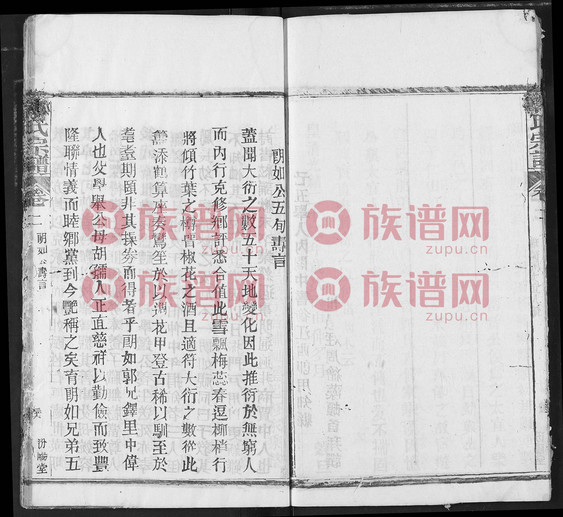 朗如公五旬壽言
蓋聞大衍之數五十天地變化因此推衍於無窮人
而內行克修鄉評悉合值此雪飄梅蕊春逗柳梢行
將傾竹葉之樽晉椒花之酒且適符大衍之數從此
籌添鶴算座奏鸞笙於以週花甲登古稀以馴至於
耄耋期頤非其操券而得者乎朗如郭兄鐸里中偉
人也父學舉公母胡孺人正直慈祥以勤儉而致豐
隆聯情義而睦鄉黨到今艷稱之矣育朗如兄弟五
氏宗譜
卷二
朗如公壽言
汾陽堂
氏宗譜
族谱网
zupu.cn
族谱网
zupu.cn
族谱网
zupu.cn
族谱网
zupu.cn